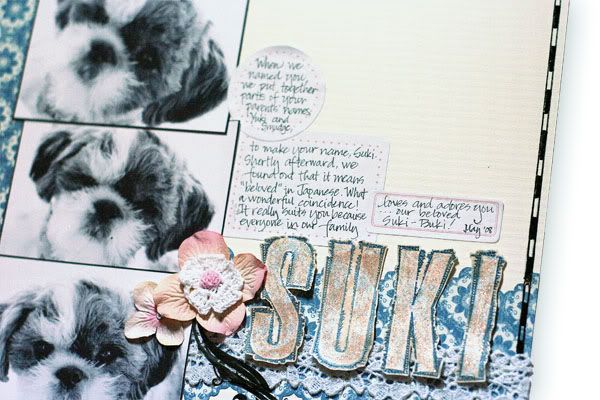 When we
named you,
we put together
parts of your
parents' names
Yuki and
Smudge,
to make your name, Suki.
Shortly afterward, we
found out that it means
"beloved" in Japanese. What
a wonderful coincidence!
It really suits you because
everyone in our family
loves and adores you
our beloved
Suki-Buki!
May '08
SUKI